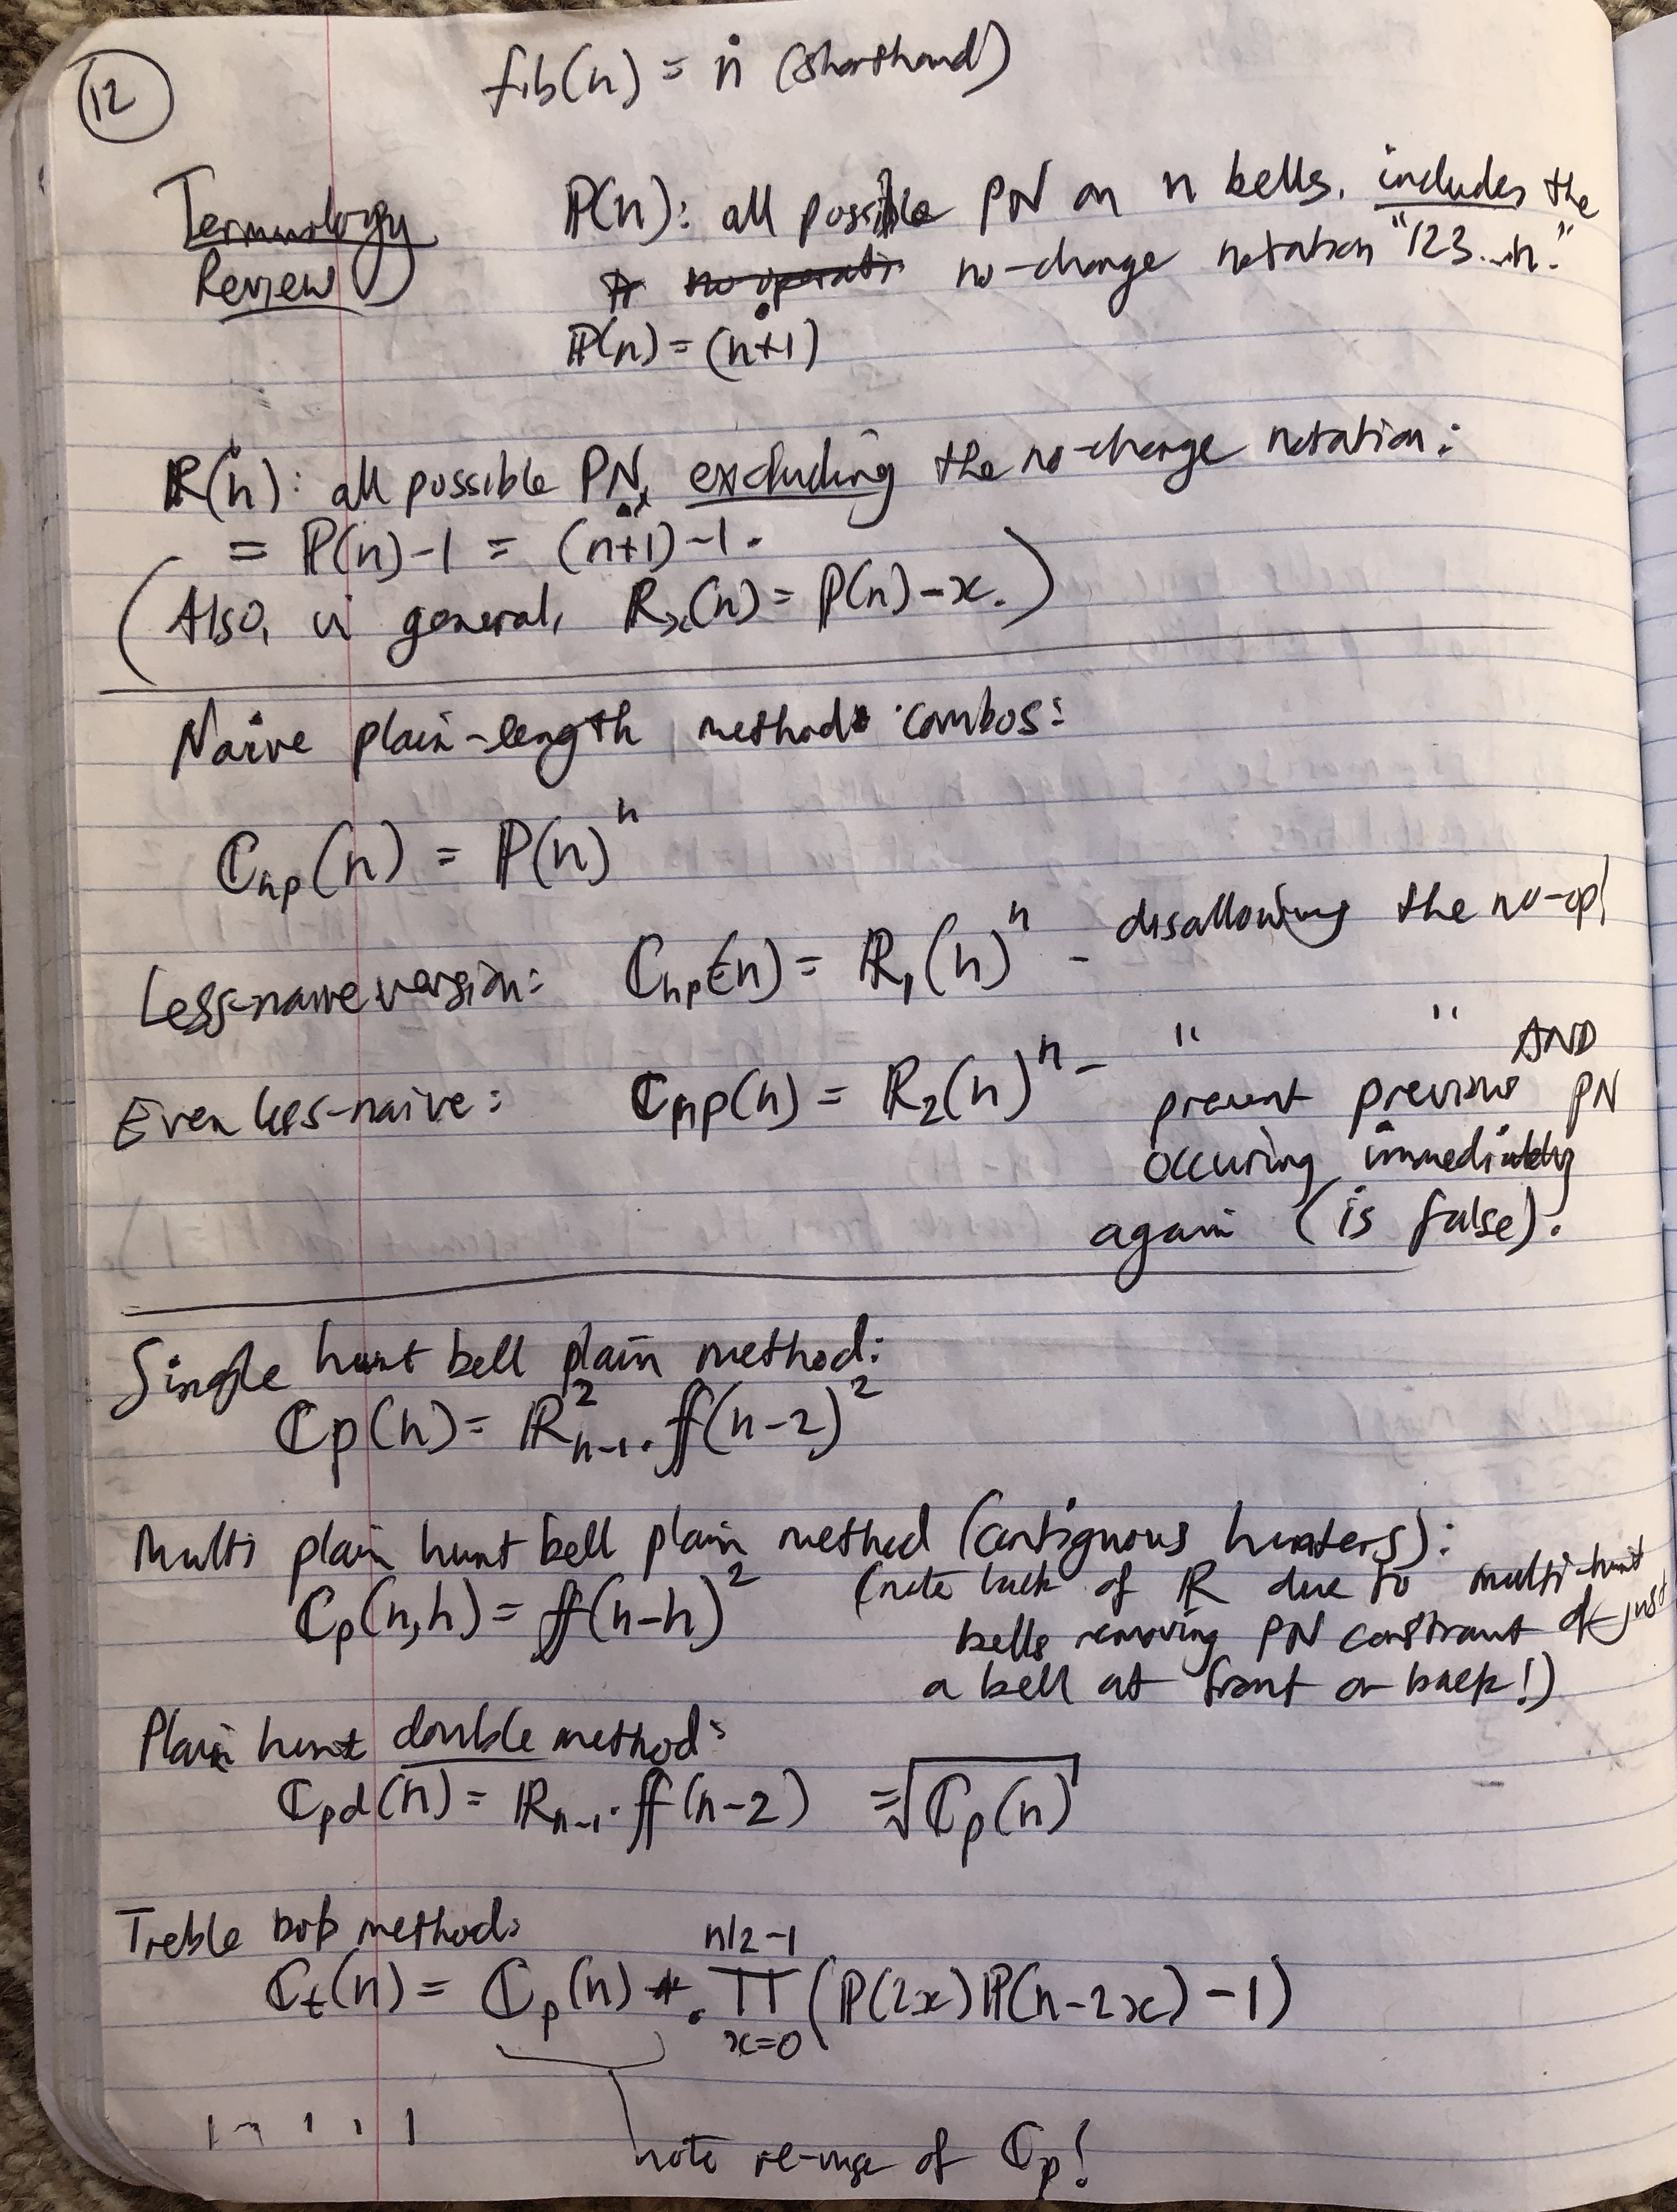 12
fib(n) = ṅ (shorthand)
Terminology
Review
ℙ(n): all possible PN on n bells. includes the
no-change notation "123...n."
ℙ(n) = (n+̇1)
ℝ(n): all possible PN, excluding the no-change notation:
= ℙ(n)-1 = (n+̇1)-1.
(Also, in general, ℝₓ(n) = ℙ(n)-x.)
Naive plain-length method combos:
ℂnp(n) = ℙ(n)ⁿ
Less-naive version: ℂnp(n) = ℝ₁(n)ⁿ - disallowing the no-op!
Even less-naive: ℂnp(n) = ℝ₂(n)ⁿ - " " AND
prevent previous PN
occuring immediately
again (is false).
Single hunt bell plain method:
ℂp(n) = ℝ²n-1 . ff(n-2)²
Multi plain hunt bell plain method (contiguous hunters):
ℂp(n,h) = ff(n-h)² (note lack of ℝ due to multi-hunt
bells removing PN constraint of just
a bell at front or back!)
Plain hunt double method:
ℂpd(n) = ℝn-1 . ff(n-2) = √ℂp(n)
Treble bob method:
n/2-1
ℂt(n) = ℂp(n) . ∏ (ℙ(2x)ℙ(n-2x) - 1)
x=0
note re-use of ℂp!